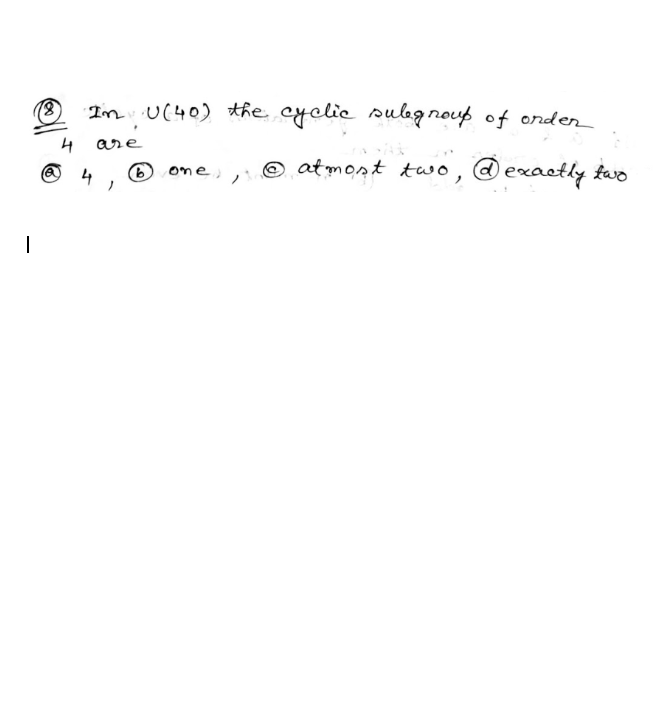 ⑧ In U(40) the cyclic subgroup of order
4 are
ⓐ 4, ⓑ one, ⓒ atmost two, ⓓ exactly two